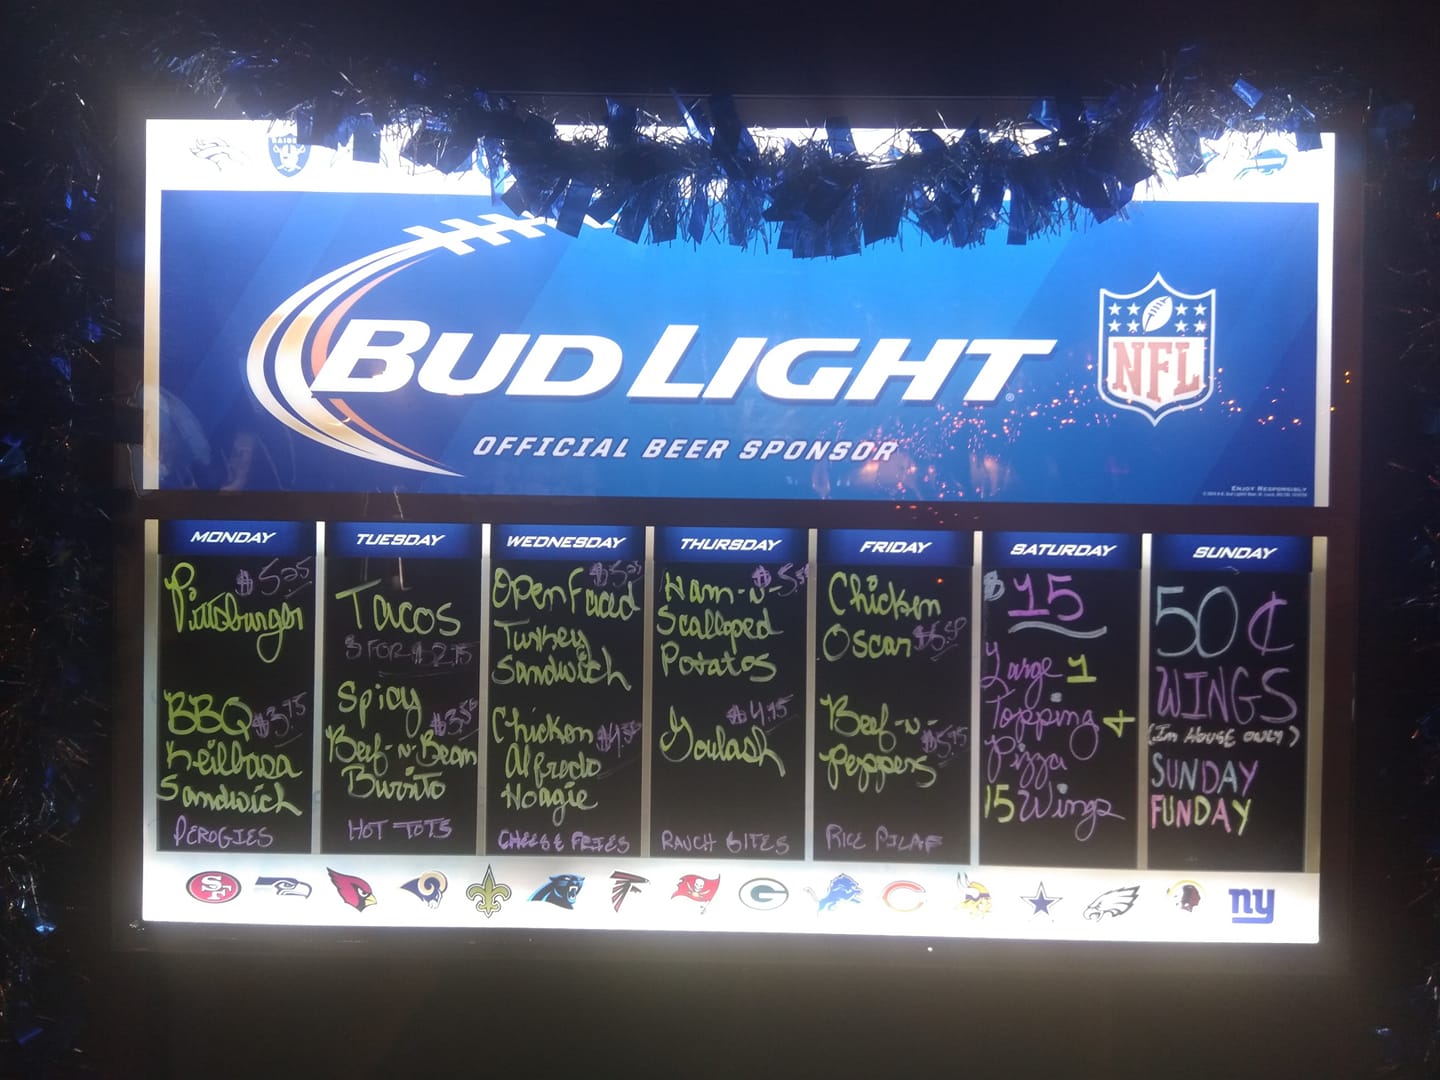 RAIDERS
BUD LIGHT
OFFICIAL BEER SPONSOR
NFL
ENJOY RESPONSIBLY
MONDAY
$5.25
Pittsburger
BBQ $3.75
Keilbasa
Sandwich
PEROGIES
TUESDAY
TACOS
3 FOR $2.75
Spicy
Beef-n-Bean
Burrito
HOT TOTS
WEDNESDAY
Open Faced
Turkey
Sandwich
Chicken
Alfredo
Hoagie
CHEESE FRIES
THURSDAY
Ham-n-
Scalloped
Potatos
$4.75
Goulash
RANCH BITES
FRIDAY
Chicken
Oscar $5.50
Beef-n-
Peppers $5.75
RICE PILAF
SATURDAY
$15
Large 1
Topping +
Pizza
15 Wings
SUNDAY
50¢
WINGS
(IN HOUSE ONLY)
SUNDAY
FUNDAY
SF
G
C
ny